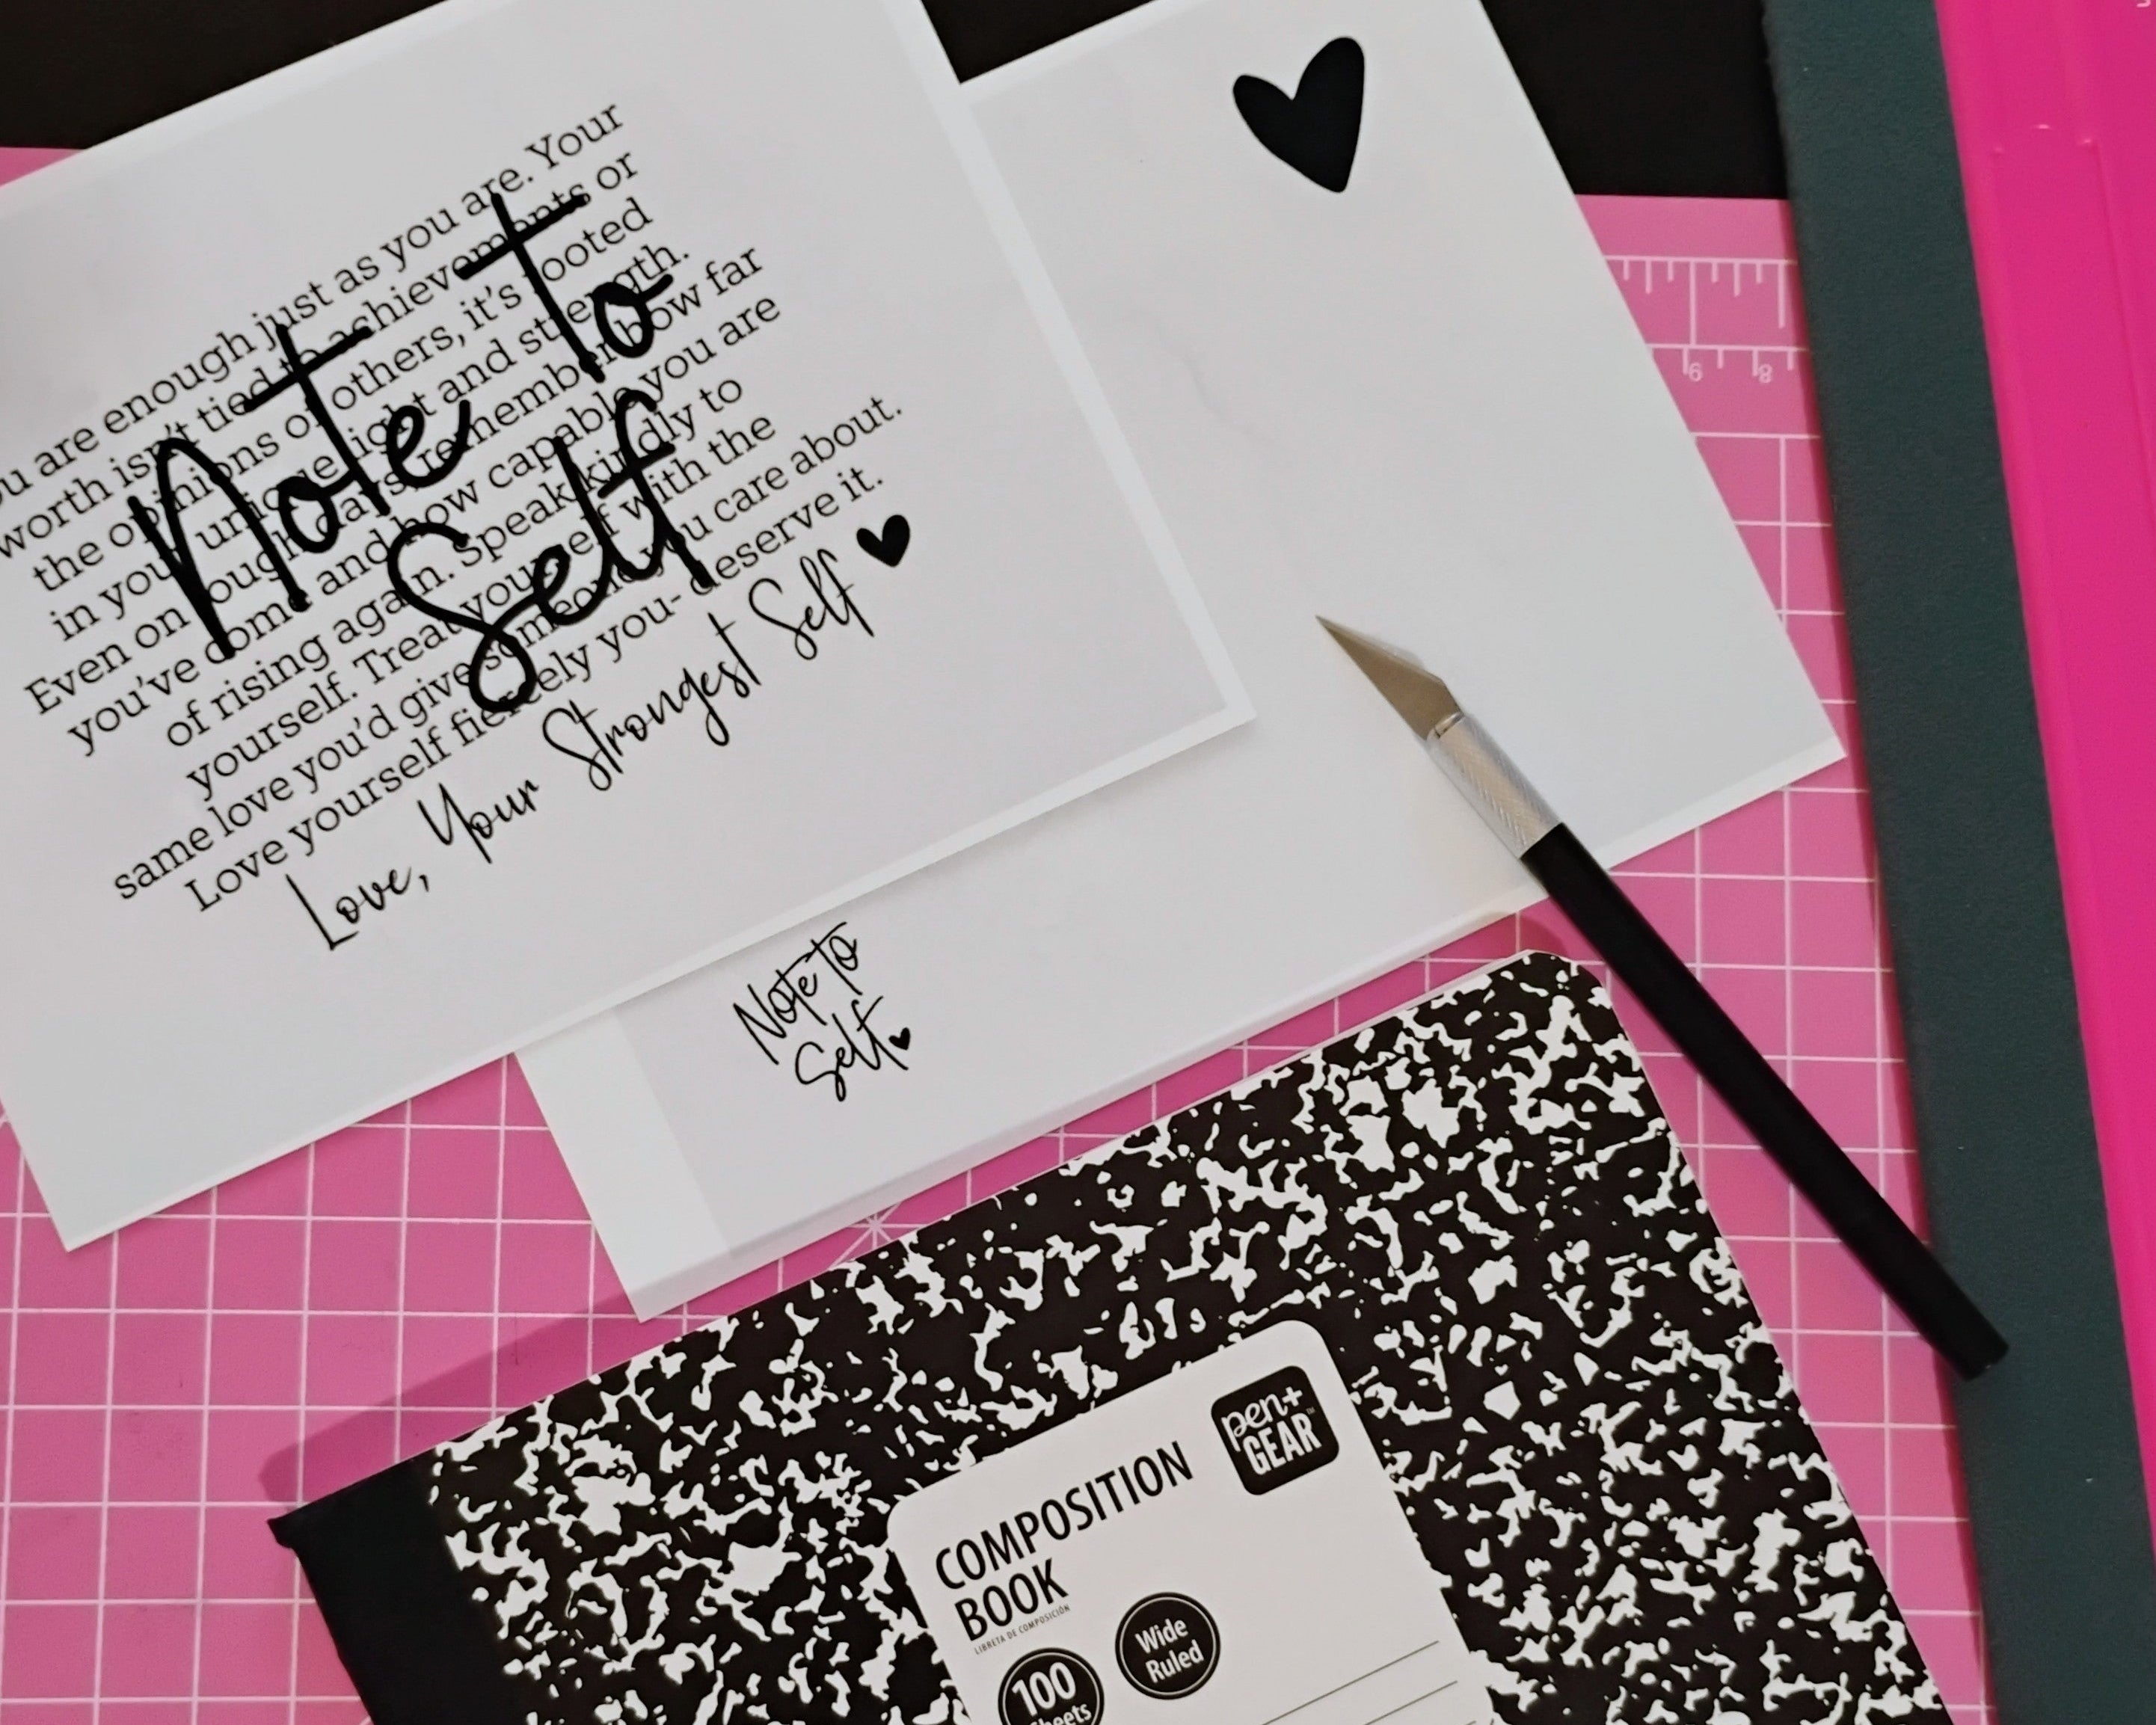 You are enough just as you are. Your
worth isn't tied to achievements or
the opinions of others, it's rooted
in your unique light and strength.
Even on rough days, remember how far
you've come and how capable you are
of rising again. Speak kindly to
yourself. Treat yourself with the
same love you'd give someone you care about.
Love yourself fiercely you- deserve it.
Love, Your Strongest Self
Note To
Self
Note To
Self
9 8
pen+
GEAR™
COMPOSITION
BOOK
LIBRETA DE COMPOSICIÓN
100
Sheets
Wide
Ruled